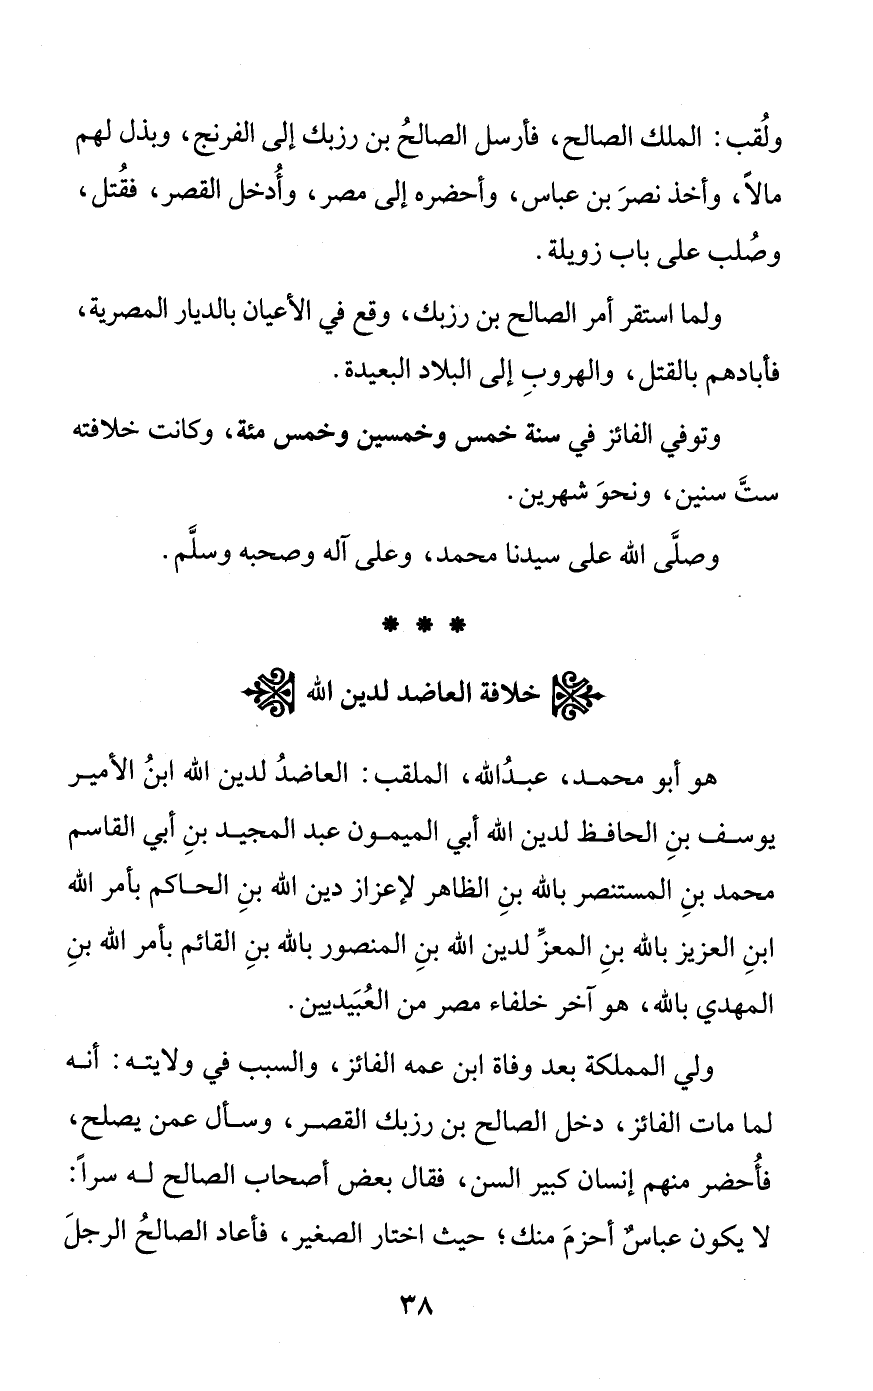 ولُقب: الملك الصالح، فأرسل الصالحُ بن رزبك إلى الفرنج، وبذل لهم
مالاً، وأخذ نصرَ بن عباس، وأحضره إلى مصر، وأُدخل القصر، فقُتل،
وصُلب على باب زويلة.
ولما استقر أمر الصالح بن رزبك، وقع في الأعيان بالديار المصرية،
فأبادهم بالقتل، والهروبِ إلى البلاد البعيدة.
وتوفي الفائز في سنة خمس وخمسين وخمس مئة، وكانت خلافته
ستَّ سنين، ونحوَ شهرين.
وصلَّى الله على سيدنا محمد، وعلى آله وصحبه وسلَّم.
* * *
خلافة العاضد لدين الله
هو أبو محمـد، عبـدُالله، الملقب: العاضدُ لدين الله ابنُ الأميـر
يوسـف بنِ الحافـظ لدين الله أبي الميمـون عبد المجيـد بنِ أبي القاسم
محمد بنِ المستنصر بالله بنِ الظاهر لإعزاز دين الله بنِ الحـاكم بأمر الله
ابنِ العزيز بالله بنِ المعزِّ لدين الله بنِ المنصور بالله بنِ القائم بأمر الله بنِ
المهدي بالله، هو آخر خلفاء مصر من العُبَيديين.
ولي المملكة بعد وفاة ابن عمه الفائز، والسبب في ولايتـه: أنـه
لما مات الفائز، دخل الصالح بن رزبك القصـر، وسـأل عمن يصلح،
فأُحضر منهم إنسان كبير السن، فقال بعض أصحاب الصالح لـه سراً:
لا يكون عباسٌ أحزمَ منك؛ حيث اختار الصغير، فأعاد الصالحُ الرجلَ
٣٨